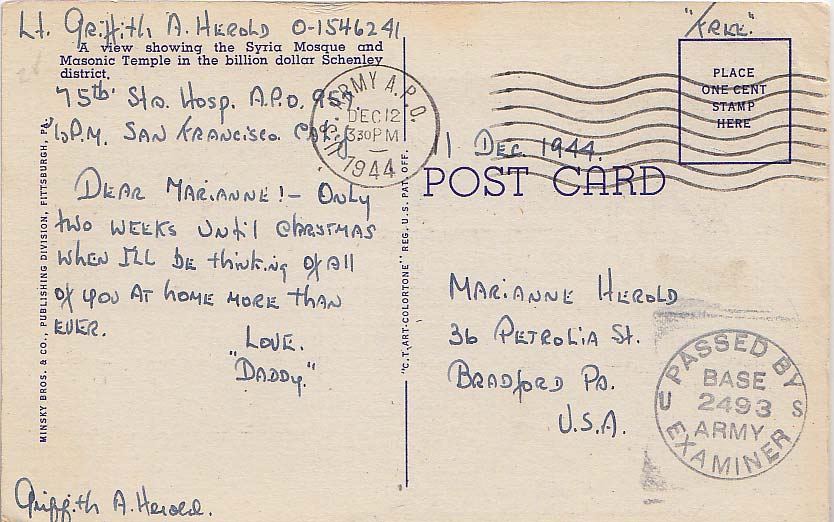 Lt. Griffith A. Herold O-1546241
"Free."
A view showing the Syria Mosque and
Masonic Temple in the billion dollar Schenley
district.
75th Sta. Hosp. A.P.O. 957
℅ P.M. San Francisco. Calif.
U.S. ARMY A.P.O.
DEC 12
3 30 PM
1944
11 Dec. 1944.
PLACE
ONE CENT
STAMP
HERE
POST CARD
Dear Marianne! - Only
two weeks until Christmas
when I'll be thinking of all
of you at home more than
ever.
Love.
"Daddy."
Marianne Herold
36 Petrolia St.
Bradford Pa.
U.S.A.
PASSED BY
BASE
2493
ARMY
EXAMINER
U S
MINSKY BROS. & CO., PUBLISHING DIVISION, PITTSBURGH, PA.
"C.T. ART-COLORTONE" REG. U.S. PAT. OFF.
Griffith A. Herold.